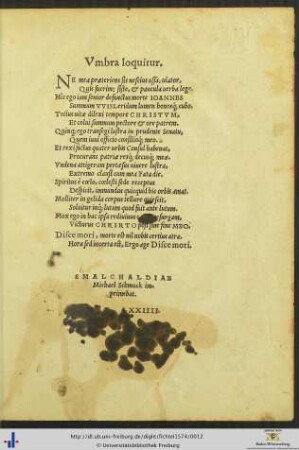 Vmbra loquitur.
NE mea prætereas sic ossa, viator,
Quis fuerim: siste, & paucula verba lego.
Hic ego iam senior defunctus morte IOANNES
Summum
Totius vitæ didici tempore CHRISTVM,
Et colui summum pectore & ore patrem.
Quinq; ego transegi lustra in prudente Senatu,
Quem iuui officio consilioq; meo.
Et rexi fictus quater orbis Consul habenas,
Procurans patriæ resq; decusq; meæ.
Vndena attigeram pertæsus viuere lustra,
Extremo clausit cum mea Fata die.
Spiritus è cœlo, cœlesti sede receptus
Despicit, immundus quicquid hic orbis amat.
Molliter in gelida corpus tellure quiescit,
Soluitur inq; lutum quod fuit ante lutum.
Mox ego in hac ipsa rediuiuus surgam,
Victurus CHRISTO sine MEO.
Disce mori, morte est nil nobis certius atra.
Hora sed incerta est, Ergo age Disce mori.
SMALCHALDIAE
Michael Schmuck im-
primebat.
XXIIII.
http://dl.ub.uni-freiburg.de/diglit/fichtel1574/0012
© Universitätsbibliothek Freiburg
Baden-Württemberg